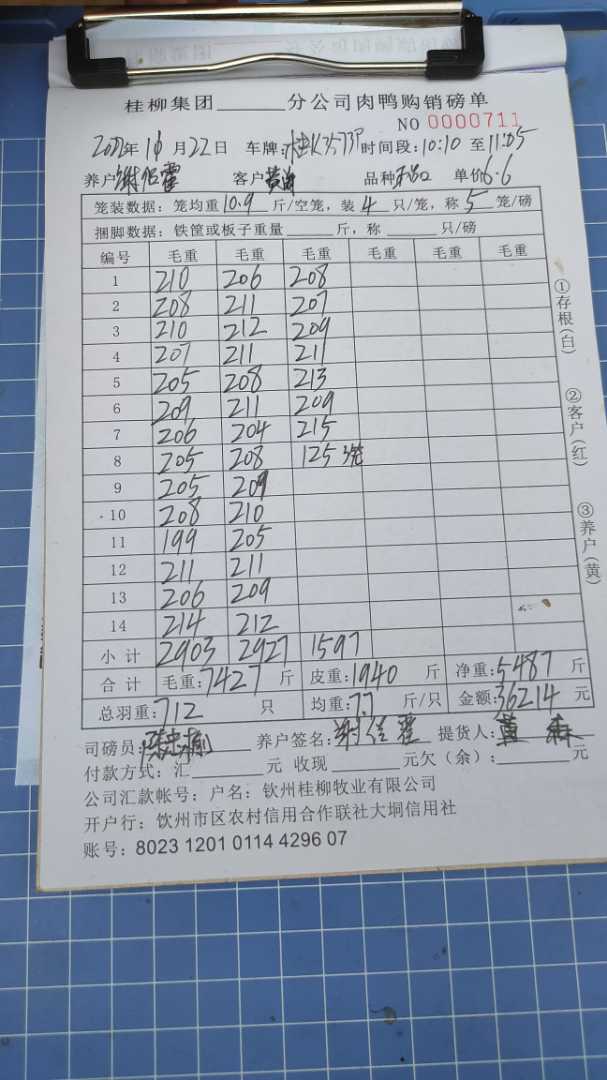 桂柳集团______分公司肉鸭购销磅单
NO 0000711
年10月22日 车牌: 时间段:10:10 至11:05
养户 客户 品种 单价6.6
笼装数据:笼均重10.9斤/空笼,装4只/笼,称5笼/磅
捆脚数据:铁筐或板子重量______斤,称______只/磅
编号 毛重 毛重 毛重 毛重 毛重 毛重
1 210 206 208
2 208 211 207
3 210 212 209
4 207 211 211
5 205 208 213
6 209 211 209
7 206 204 215
8 205 208 125 3笼
9 205 209
10 208 210
11 199 205
12 211 211
13 206 209
14 214 212
小计 2903 2927 1597
合计 毛重:7427斤 皮重:1940斤 净重:5487斤
总羽重:712只 均重:7.7斤/只 金额:36214元
司磅员: 养户签名: 提货人:黄森
付款方式:汇______元 收现______元欠(余):______元
公司汇款帐号:户名:钦州桂柳牧业有限公司
开户行:钦州市区农村信用合作联社大垌信用社
账号:8023 1201 0114 4296 07
①存根(白)
②客户(红)
③养户(黄)